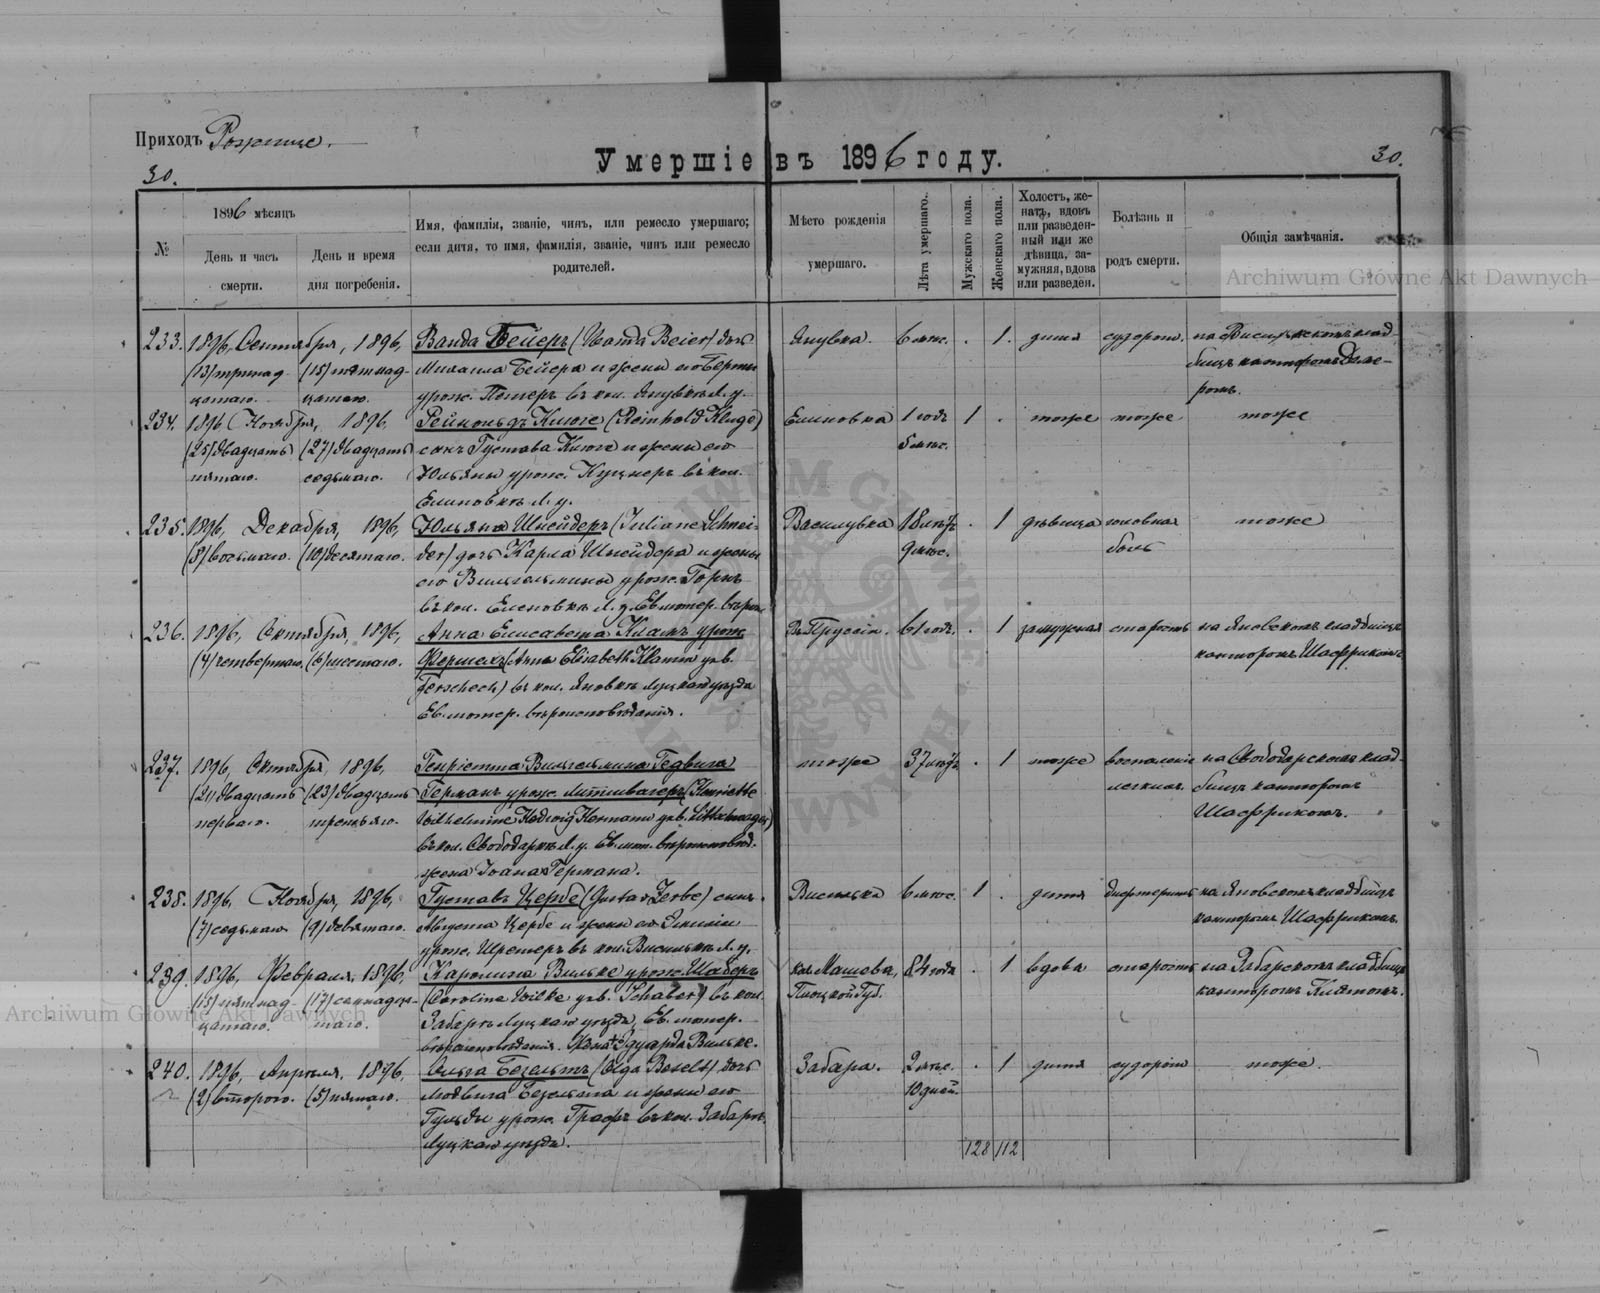 Приходъ Рожище.
Умершіе въ 1896 году.
30.
30.
№
1896 мѣсяцъ
День и часъ смерти.
День и время дня погребенія.
Имя, фамилія, званіе, чинъ, или ремесло умершаго;
если дитя, то имя, фамилія, званіе, чинъ или ремесло
родителей.
Мѣсто рожденія
умершаго.
Лѣта умершаго.
Мужскаго пола.
Женскаго пола.
Холостъ, же-
натъ, вдовъ
или разведен-
ный или же
дѣвица, за-
мужняя, вдова
или разведен.
Болѣзнь и
родъ смерти.
Общія замѣчанія.
Archiwum Główne Akt Dawnych
233. 1896, Сентября, 1896, Ванда Бейеръ (Wanda Beier) дочь Янувка. 6 мѣс. . 1. дитя судорог.
(13) тринад- (15) пятнад- Михаила Бейера и жены его Берты
цатаго. цатаго. урож. Петеръ в кол. Янувкѣ Л. у.
234. 1896 Ноября, 1896, Рейнольдъ Клюге (Reinhold Kluge) Елиновка 1 годъ 1 . тоже тоже тоже
(25) двадцать (27) двадцать сынъ Густава Клюге и жены его 5 мѣс.
пятаго. седьмаго. Юльяны урож. Куцнеръ въ кол.
Елиновкѣ Л. у.
235. 1896, Декабря, 1896, Юльяна Шнейдеръ (Juliane Schnei- Василувка 18 лѣтъ . 1 дѣвица головная тоже
(8) восьмаго. (10) десятаго. der) дочь Карла Шнейдера и жены 9 мѣс. боль
его Вильгельмины урож. Горнъ
въ кол. Еленовкѣ Л. у. Ев. лютер. вѣроис.
236. 1896, Октября, 1896, Анна Елисавета Кламъ урож. Въ Пруссіи. 61 годъ. . 1 замужняя старость на Яновскомъ кладбищѣ
(4) четвертаго. (6) шестаго. Фершехъ (Anna Elisabeth Klamm geb. канторомъ Шафрикомъ
Ferschech) въ кол. Яновкѣ Луцкаго уѣзда
Ев. лютер. вѣроисповѣданія.
237. 1896, Октября, 1896, Генріетта Вильгельмина Гедвига тоже 37 лѣтъ . 1 тоже воспаленіе на Свободарскомъ клад-
(21) двадцать (23) двадцать Германъ урож. Литтвагеръ (Henriette легкихъ. бищѣ канторомъ
перваго. третьяго. Wilhelmine Hedwig Hermann geb. Шафрикомъ.
въ кол. Свободаркѣ Л. у. Ев. лют. вѣроисповѣд.
жена Іоана Германа.
238. 1896, Ноября, 1896, Густавъ Цербе (Gustav Zerbe) сынъ Василька 6 мѣс. 1 . дитя дифтеритъ на Яновскомъ кладбищѣ
(7) седьмаго (9) девятаго. Августа Цербе и жены его Эмиліи канторомъ Шафрикомъ.
урож. Шретеръ въ кол. Василькѣ Л. у.
239. 1896, Февраля, 1896, Каролина Вильке урож. Шаберъ кол. Машева, 84 года . 1 вдова старость на Забарскомъ кладбищѣ
(15) пятнад- (17) семнадца- (Caroline Wilke geb. Schaber) въ кол. Плоцкой Губ. канторомъ
цатаго. таго. Забарѣ Луцкаго уѣзда, Ев. лютер.
вѣроисповѣданія. Жена † Эдуарда Вильке.
Archiwum Główne Akt Dawnych
240. 1896, Апрѣля, 1896, Ольга Безельтъ (Olga Beselt) дочь Забара. 2 мѣс. . 1 дитя судороги тоже.
(2) втораго. (5) пятаго. Людвига Безельта и жены его 10 дней.
Гульды урож. Графъ въ кол. Забарѣ
Луцкаго уѣзда.
128 112